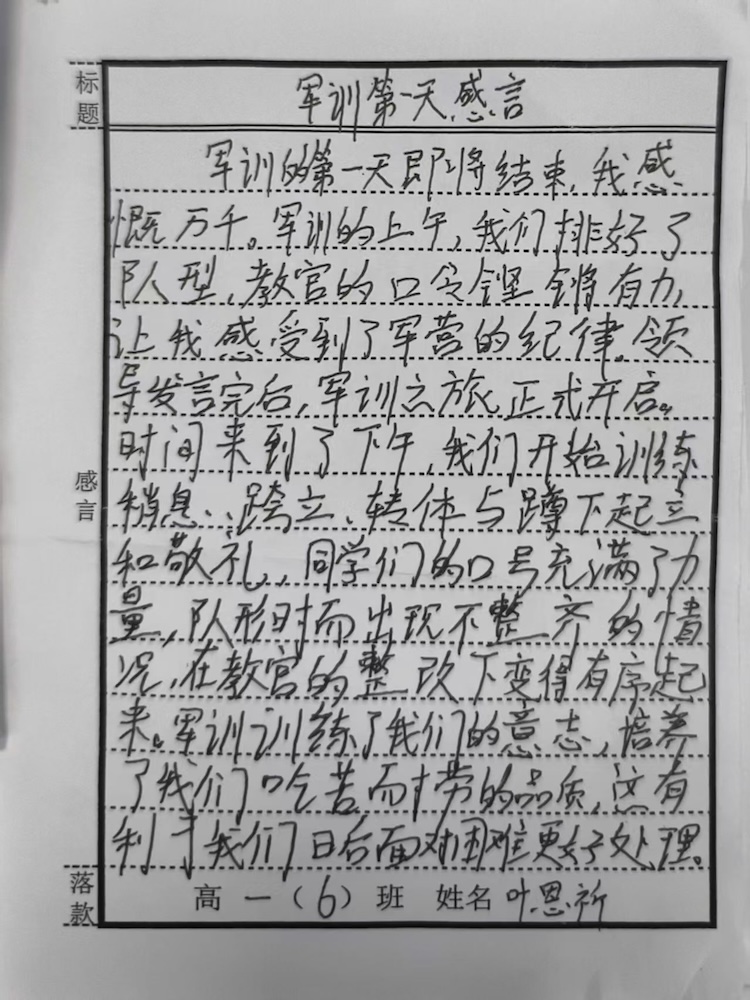 标题
军训第一天感言
军训的第一天即将结束,我感
慨万千。军训的上午,我们排好了
队型,教官的口令铿锵有力,
让我感受到了军营的纪律。领
导发言完后,军训之旅正式开启。
时间来到了下午,我们开始训练
稍息、跨立、转体与蹲下起立
和敬礼,同学们的口号充满了力
量,队形时而出现不整齐的情
况,在教官的整改下变得有序起
来。军训训练了我们的意志,培养
了我们吃苦耐劳的品质,这有
利于我们日后面对困难更好处理。
感言
落款
高一(6)班 姓名叶恩祈